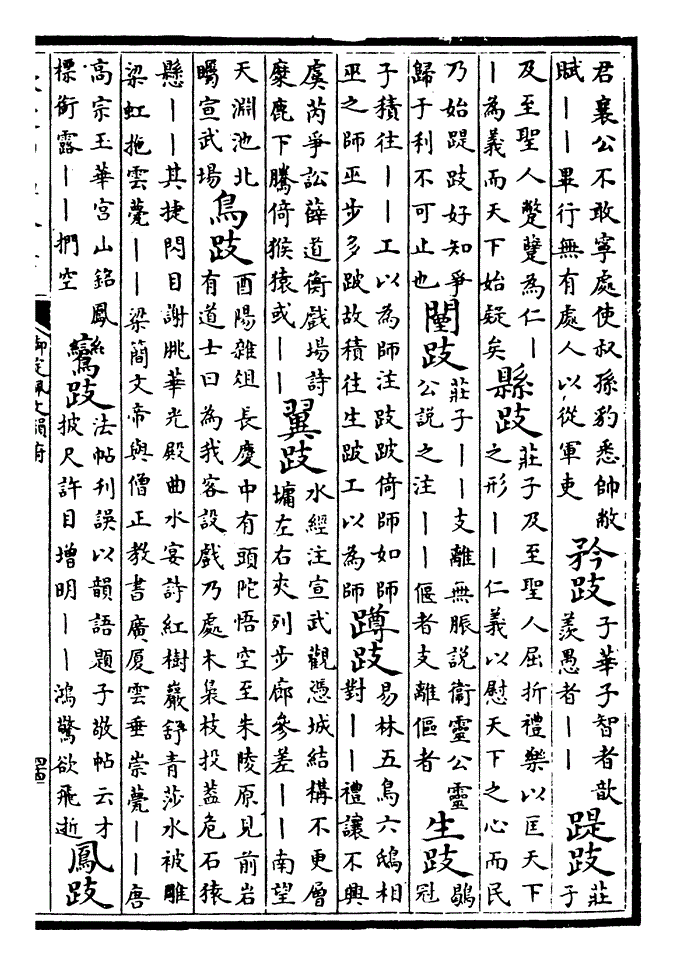 君襄公不敢寧處使叔孫豹悉帥敝
賦——畢行無有處人以從軍吏
矜跂
子華子智者歆
羨愚者——
踶跂
莊
子
及至聖人蹩躠為仁—
—為義而天下始疑矣
縣跂
莊子及至聖人屈折禮樂以匡天下
之形——仁義以慰天下之心而民
乃始踶跂好知爭
歸于利不可止也
闉跂
莊子——支離無脤說衛靈公靈
公說之注——傴者支離傴者
生跂
鶡
冠
子積往——工以為師注跂跛倚師如師
巫之師巫步多跛故積往生跛工以為師
蹲跂
易林五鳥六鴟相
對——禮讓不興
虞芮爭訟薛道衡戲場詩
麋鹿下騰倚猴猿或——
翼跂
水經注宣武觀憑城結構不更層
墉左右夾列步廊參差——南望
天淵池北
矚宣武場
鳥跂
酉陽雜俎長慶中有頭陀悟空至朱陵原見前岩
有道士曰為我客設戲乃處木梟枝投蓋危石猿
懸——其捷閃目謝朓華光殿曲水宴詩紅樹巖舒青莎水被雕
梁虹拖雲甍——梁簡文帝與僧正教書廣厦雲垂崇甍——唐
高宗玉華宮山銘鳳
標銜露——捫空
鸞跂
法帖刊誤以韻語題子敬帖云才
披尺許目增明——鴻驚欲飛逝
鳳跂
御定佩文韻府